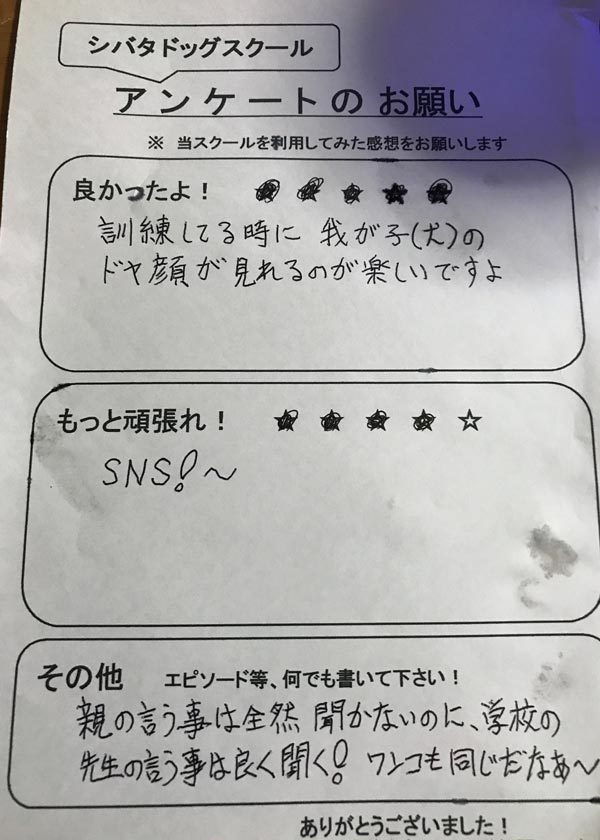 シバタドッグスクール
アンケートのお願い
※ 当スクールを利用してみた感想をお願いします
良かったよ！ ★★★★★
訓練してる時に 我が子(犬)の
ドヤ顔が見れるのが楽しいですよ
もっと頑張れ！ ★★★★☆
SNS!〜
その他 エピソード等、何でも書いて下さい！
親の言う事は全然 聞かないのに、学校の
先生の言う事は良く聞く! ワンコも同じだなぁ〜
ありがとうございました！